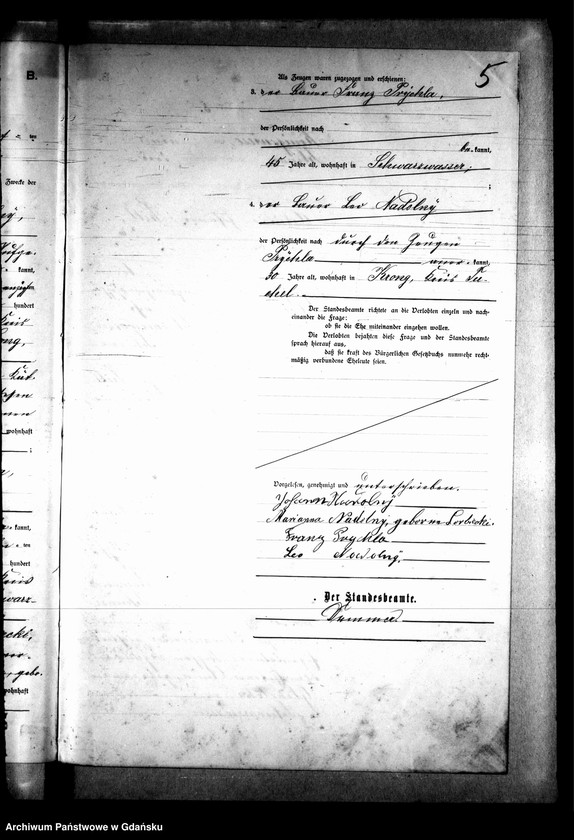 B.
5
Als Zeugen waren zugezogen und erschienen:
3. der Bauer Franz
der Persönlichkeit nach
be kannt,
45 Jahre alt, wohnhaft in Schwarzwasser,
;
4. der Bauer Leo Nadolny
der Persönlichkeit nach durch den Zeugen
aner kannt,
30 Jahre alt, wohnhaft in Krong, Kreis Tu-
chel.
Der Standesbeamte richtete an die Verlobten einzeln und nach-
einander die Frage:
ob sie die Ehe miteinander eingehen wollen.
Die Verlobten bejahten diese Frage und der Standesbeamte
sprach hierauf aus,
daß sie kraft des Bürgerlichen Gesetzbuchs nunmehr recht-
mäßig verbundene Eheleute seien.
Vorgelesen, genehmigt und unterschrieben.
Johann Nadolny
Marianna Nadolny, geborne
Franz
Leo Nadolny.
Der Standesbeamte.
ten
Zwecke der
kannt,
hundert
wohnhaft
;
kannt,
ten
hundert
wohnhaft
Archiwum Państwowe w Gdańsku